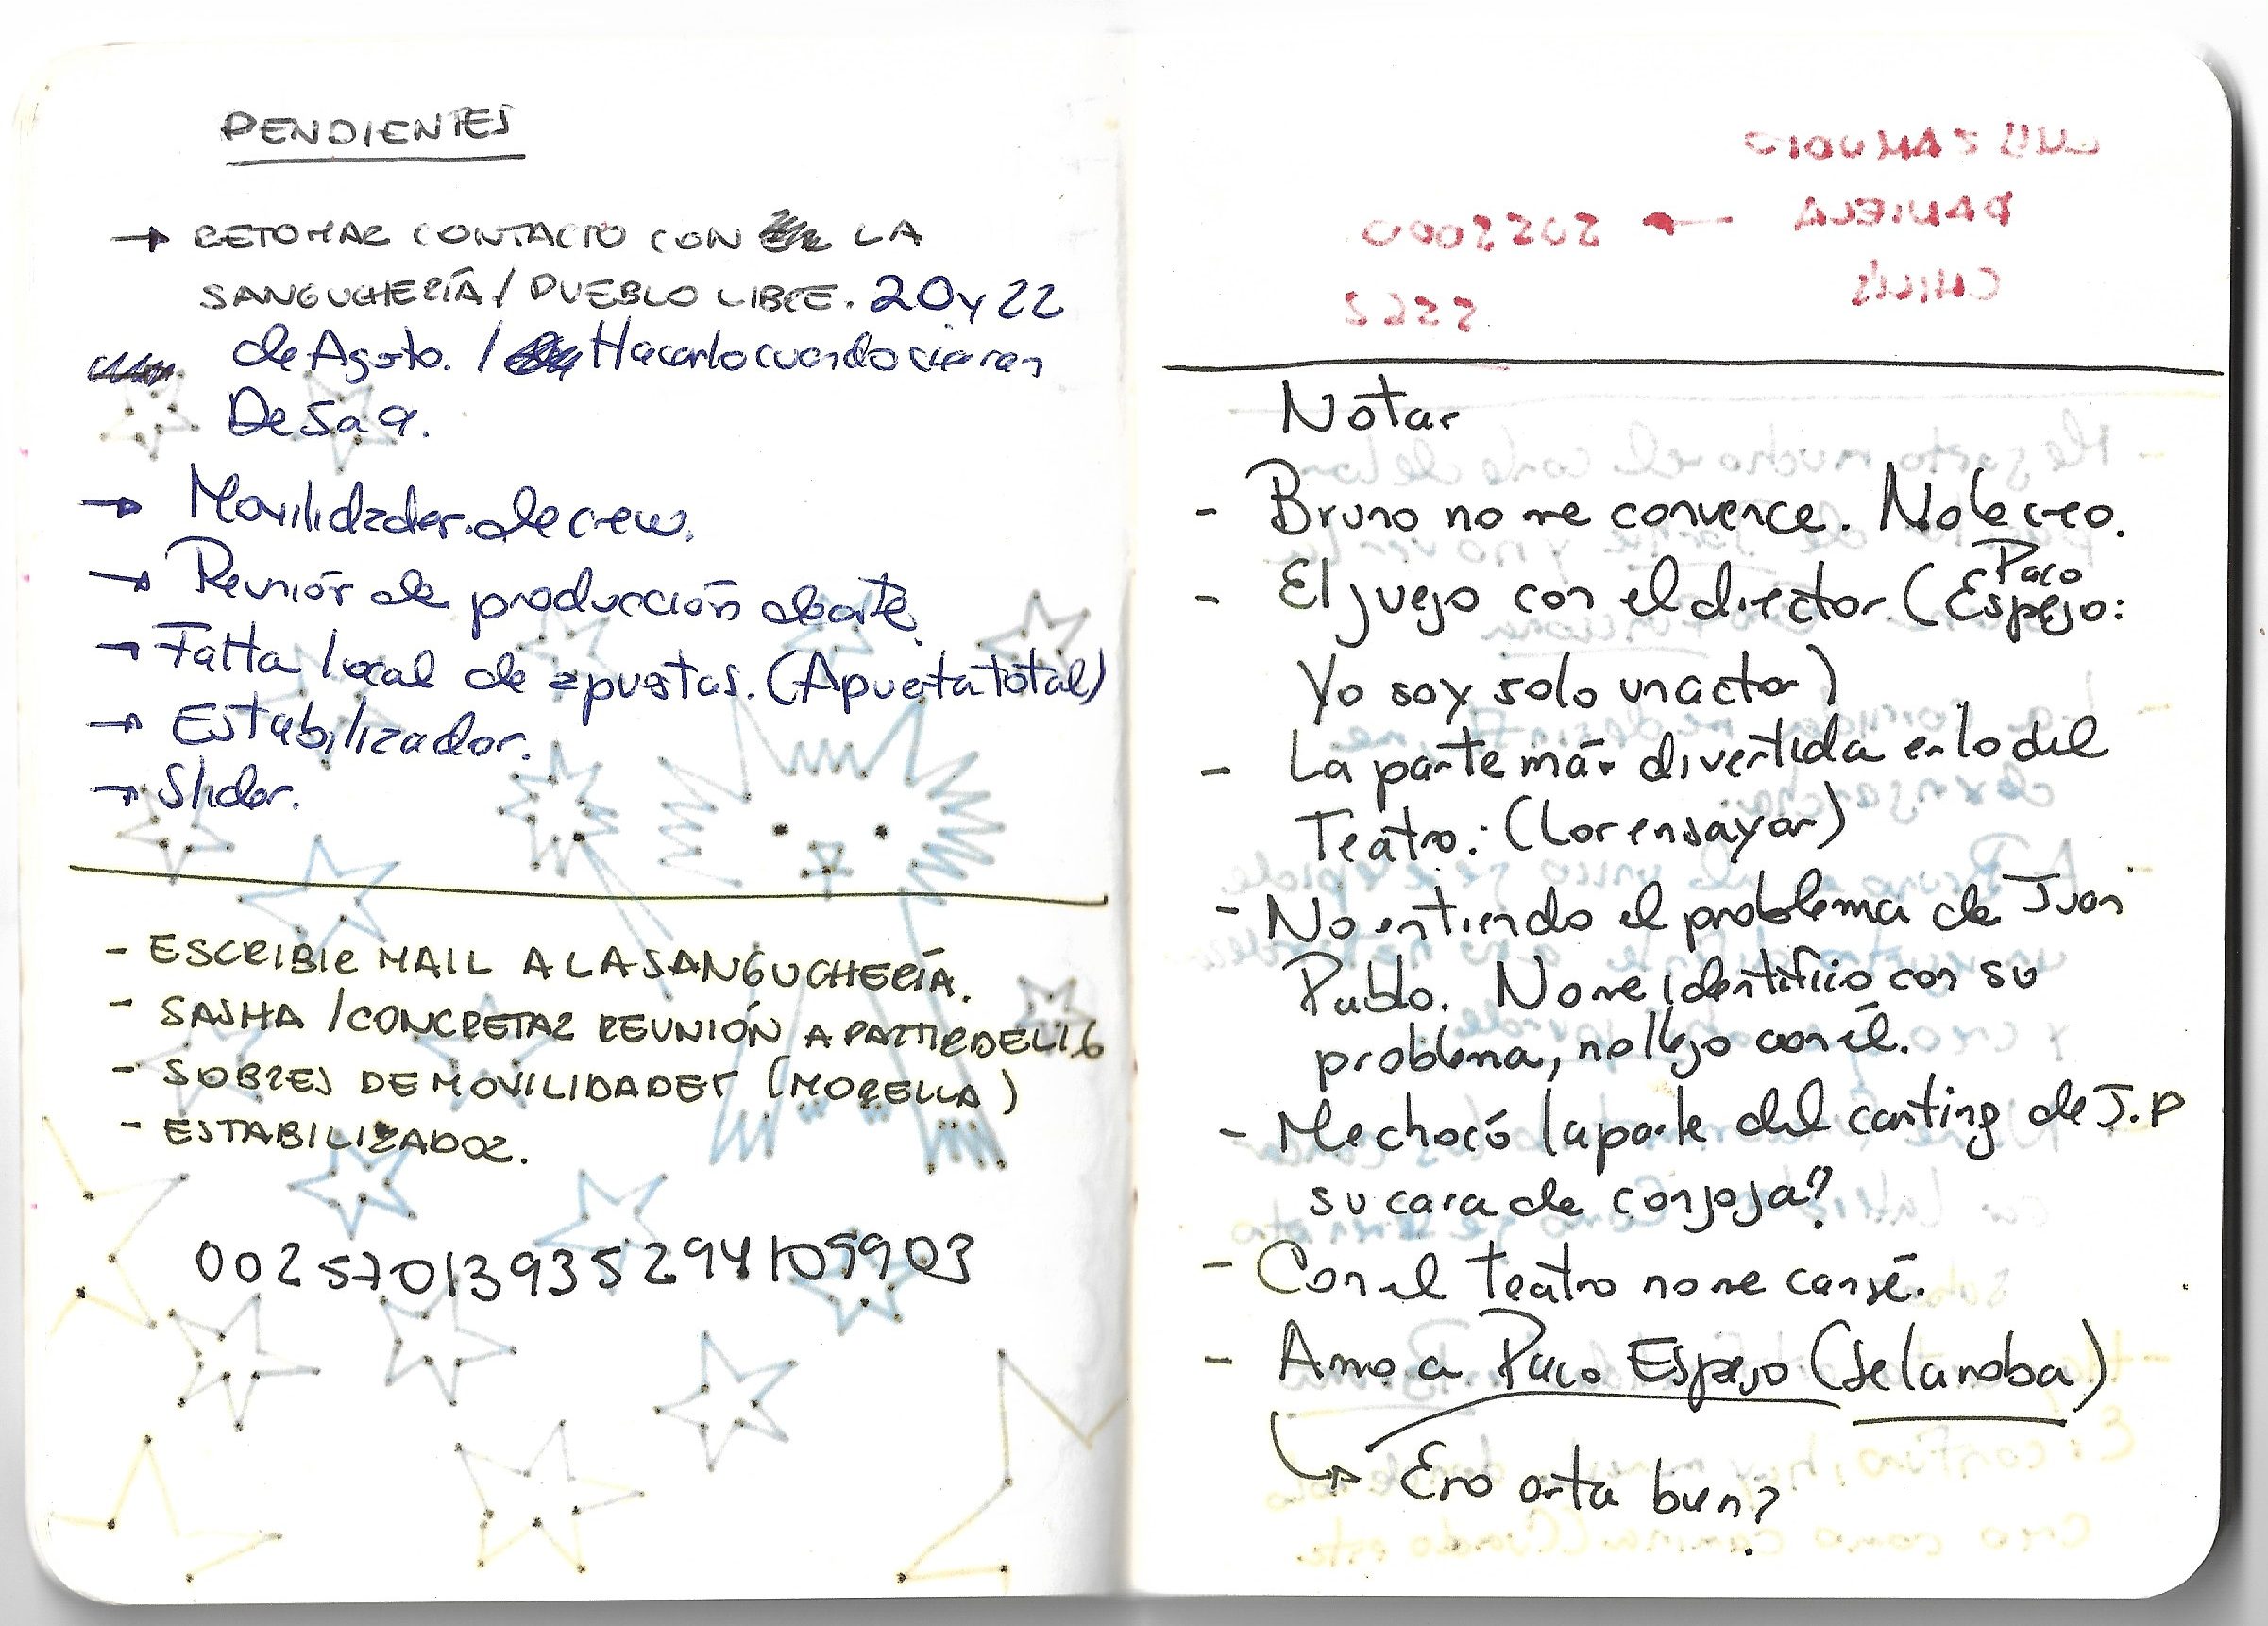 PENDIENTES
→ RETOMAR CONTACTO CON LA
SANGUCHERÍA / PUEBLO LIBRE. 20 y 22
de Agosto. / Hacerlo cuando cierran
De 5 a 9.
→ Movilidades de crew.
→ Reunión de producción de arte.
→ Falta local de apuestas. (Apuesta total)
→ Estabilizador.
→ Slider.
- ESCRIBIR MAIL A LA SANGUCHERÍA.
- SASHA / CONCRETAR REUNIÓN A PARTIR DEL 16
- SOBRES DE MOVILIDADES (MORELLA)
- ESTABILIZADOR.
00257013935294105903
Notas
- Bruno no me convence. No le creo.
- El juego con el director (Paco Espejo:
Yo soy solo un actor)
- La parte más divertida es lo del
Teatro: (Los ensayos)
- No entiendo el problema de Juan
Pablo. No me identifico con su
problema, no llego con él.
- Me chocó la parte del casting de J.P
su cara de congoja?
- Con el teatro no me cansé.
- Amo a Paco Espejo (Se la roba)
↳ Eso está bien?